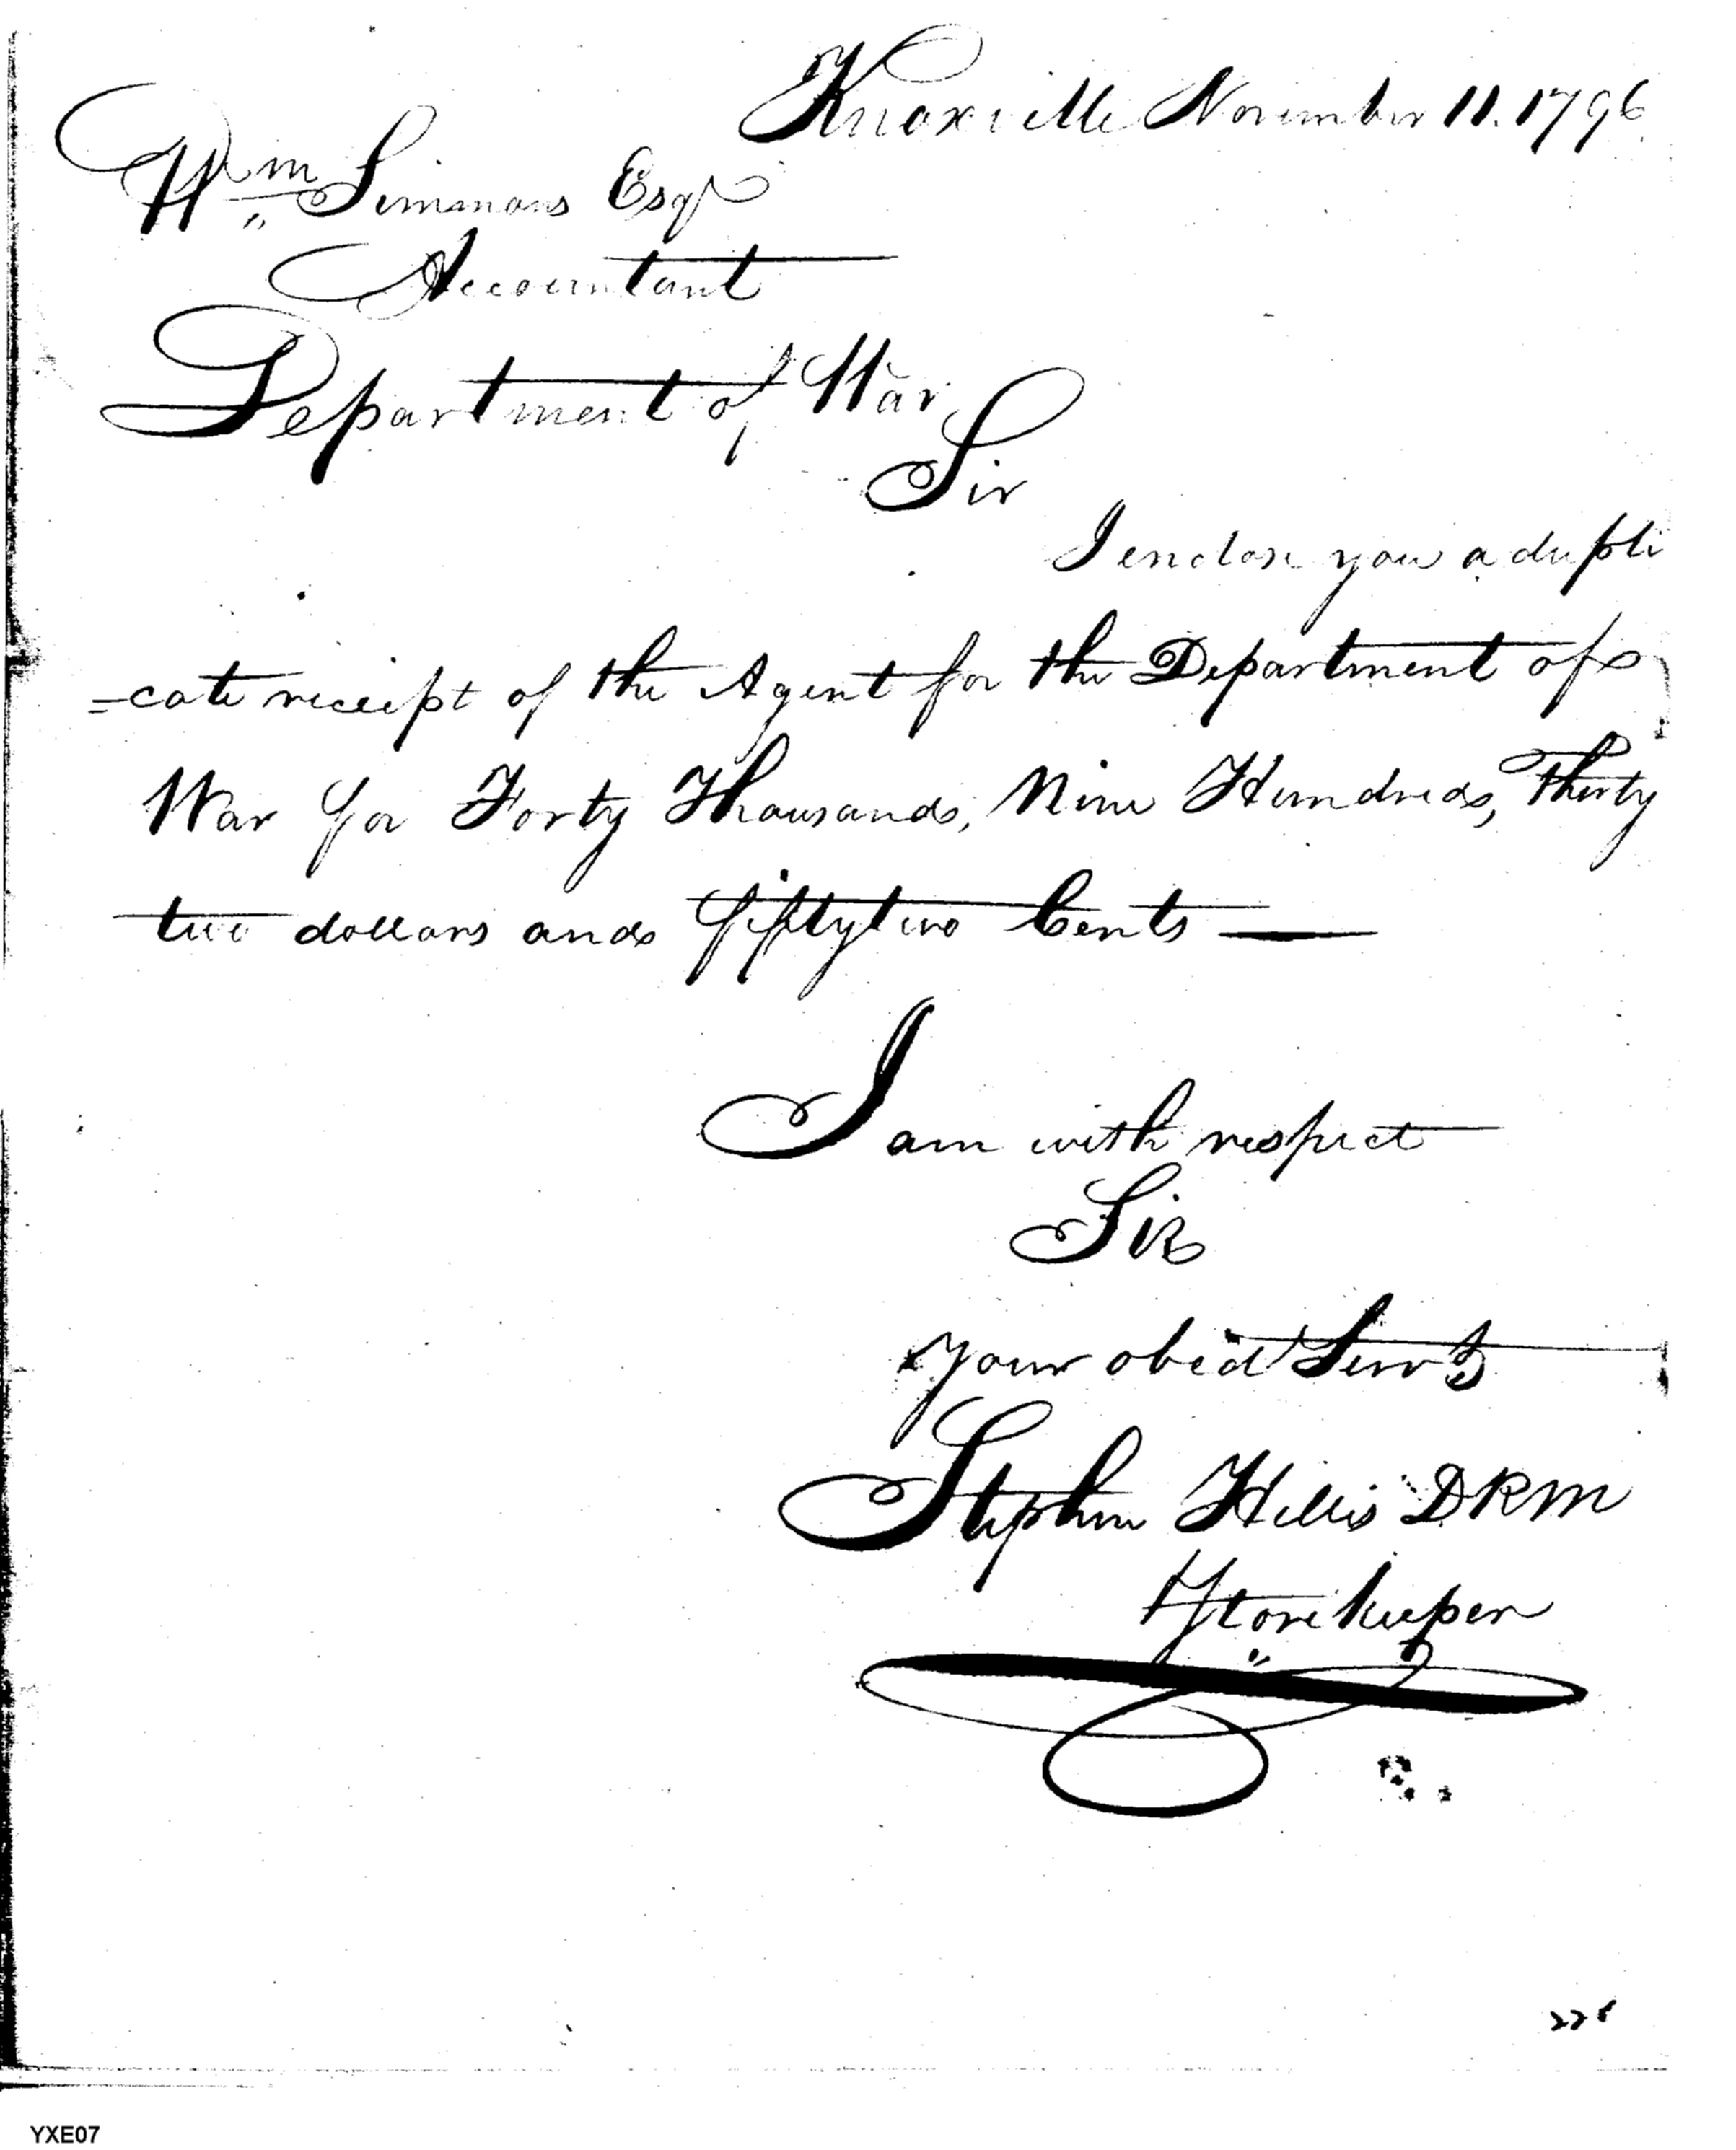 Knoxville November 11. 1796
Wm Simmons Esqr
Accountant
Department of War
Sir
I enclose you a dupli
=cate receipt of the Agent for the Department of
War for Forty Thousands, Nine Hundreds, Thirty
two dollars and fifty two Cents
I am with respect
Sir
Your obed Servt
Stephen Hillis DRM
Storekeeper
YXE07